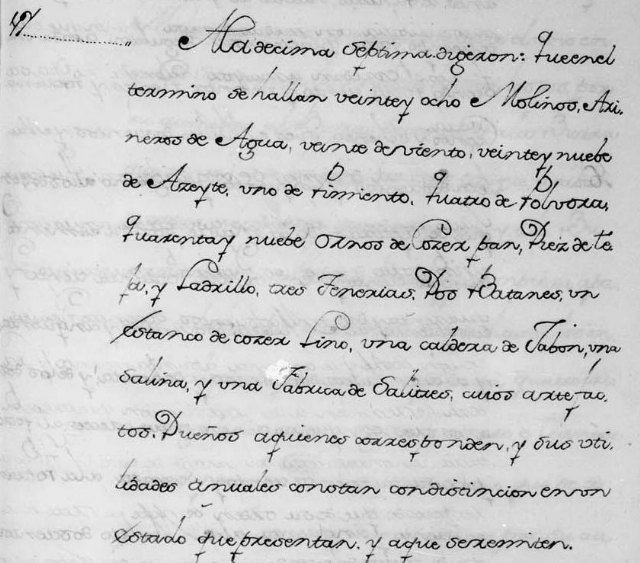 17
A la decima septima digeron: Que en el
termino se hallan veinte y ocho Molinos, Ari-
neros de Agua, veinte de viento, veinte y nuebe
de Azeyte, uno de Pimiento, Quatro de Polvora,
Quarenta y nuebe ornos de Cozer pan, Diez de te
ja, y Ladrillo, tres Tenerias, Dos Batanes, un
Estanco de cozer Lino, una caldera de Jabon, una
salina, y una Fabrica de Salitres, cuios artefac-
tos, Dueños aquienes corresponden, y sus uti-
lidades anuales constan con distincion en un
Estado que presentan, y aque se remiten.